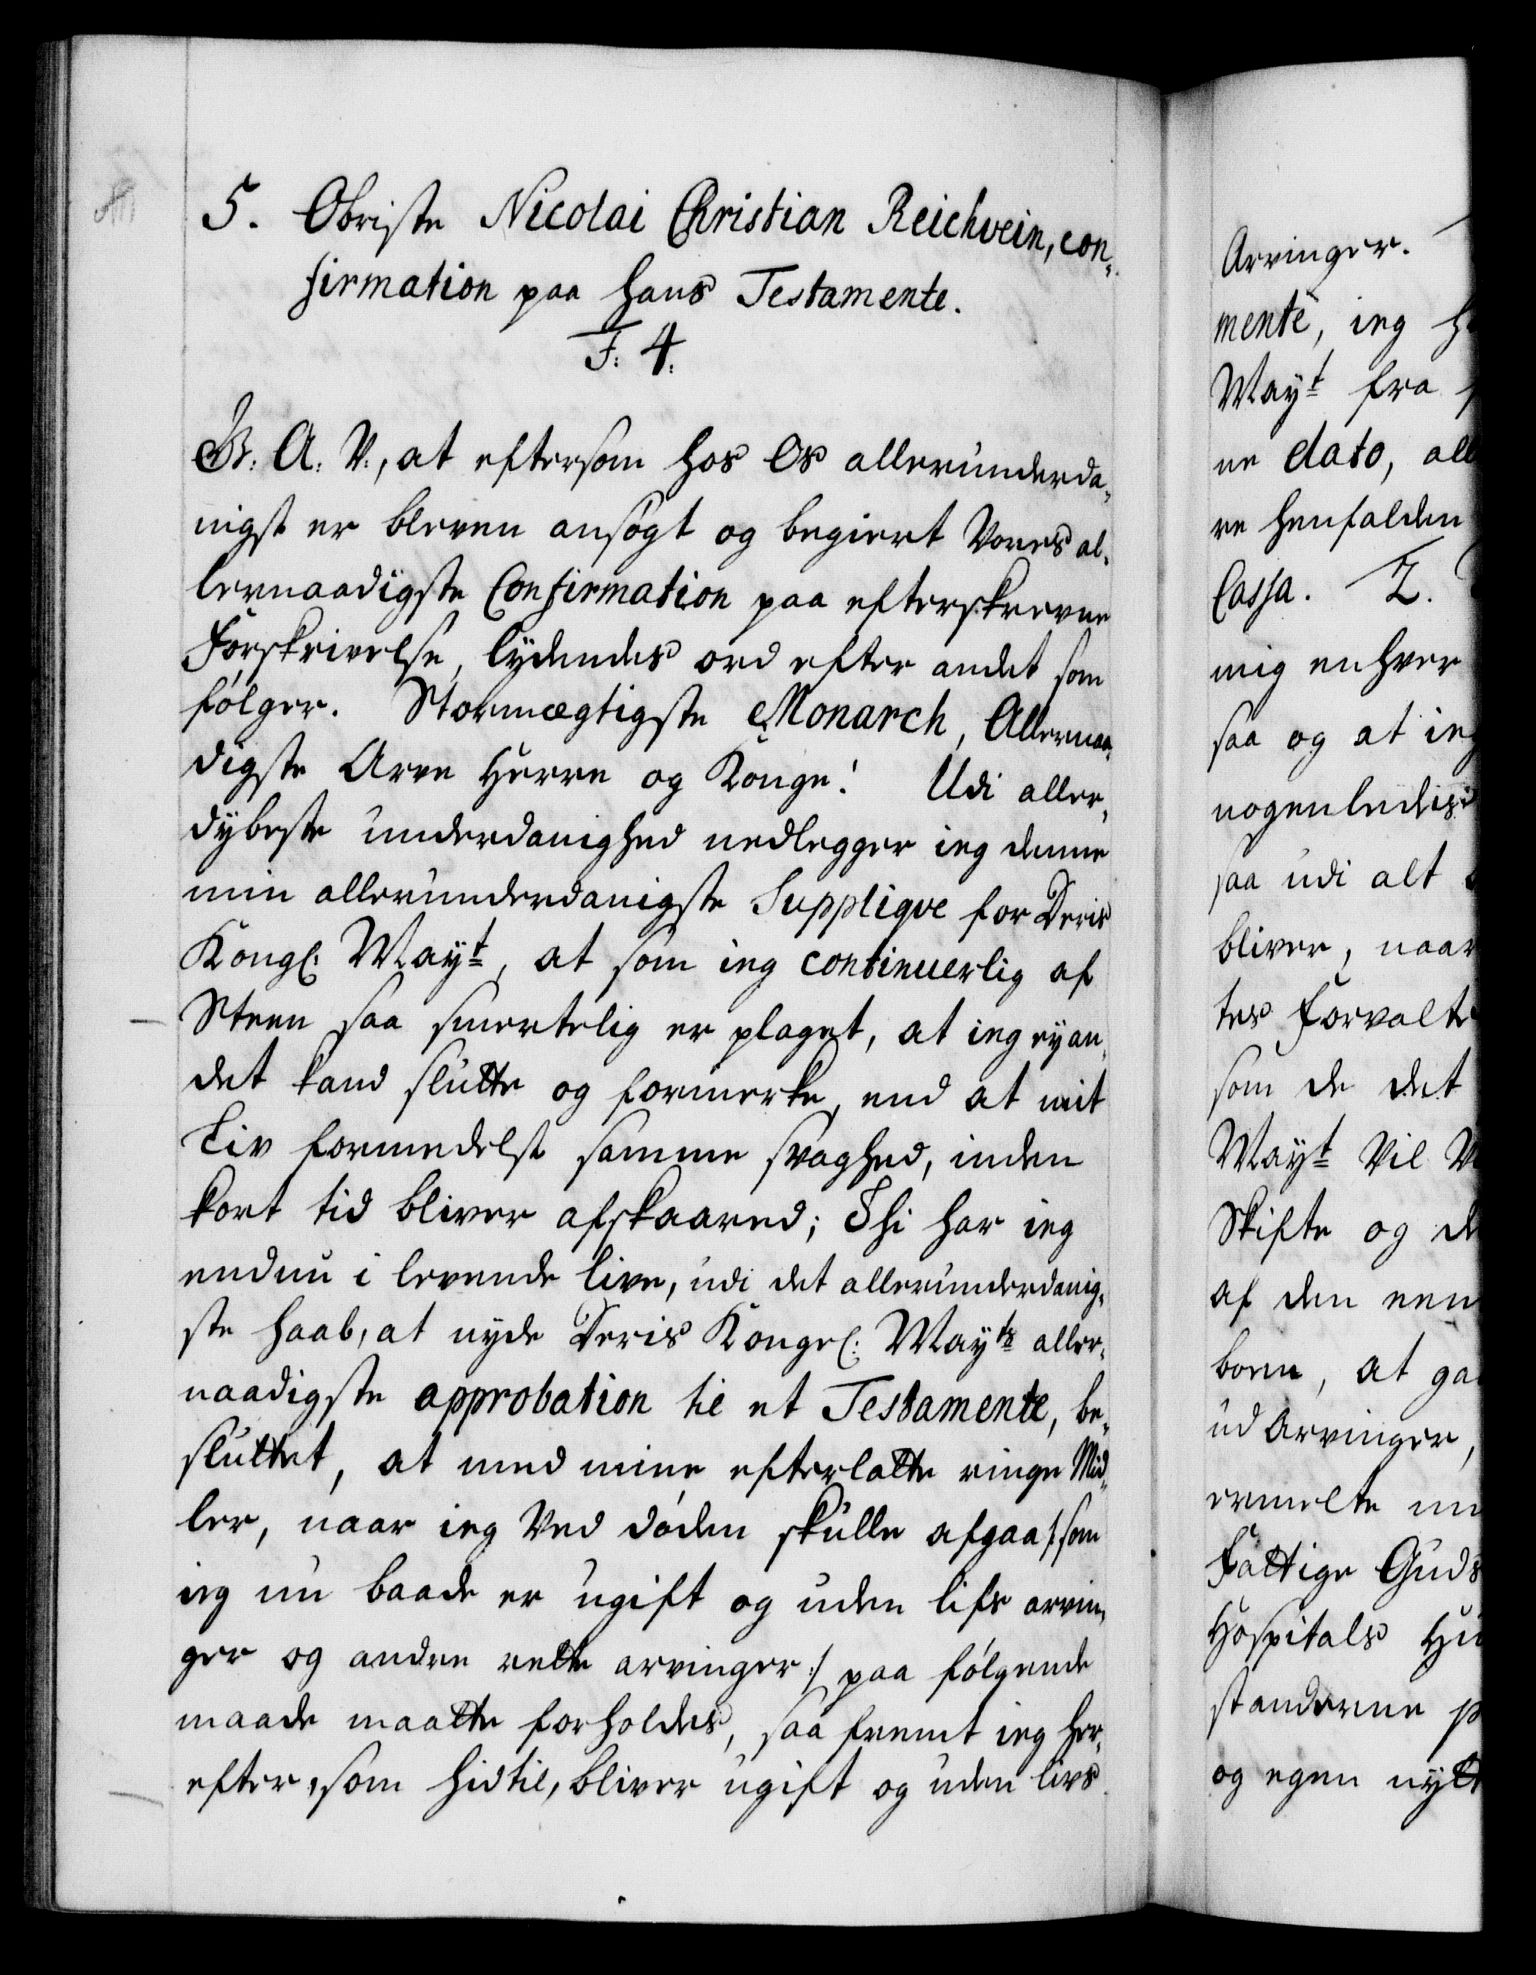 5. Obriste Nicolai Christian Reichvein, con-
firmation paa hans Testamente.
F: 4.
G: A: V:, at eftersom hos Os allerunderda-
nigst er bleven ansøgt og begiert Vores al-
lernaadigste Confirmation paa efterskrevne
Forskrivelse, lydendes ord efter andet som
følger. Stormægtigste Monarch, Allernaa-
digste Arve Herre og Konge! Udi aller-
dybeste underdanighed nedlegger ieg denne
min allerunderdanigste Supplique for Deris
Kongl: Mayt, at som ieg continuerlig af
Steen saa smertelig er plaget, at ieg ey an-
det kand slutte og formerke, end at mit
Liv formedelst samme svaghed, inden
kort tid bliver afskaared; Thi har ieg
endnu i levende live, udi det allerunderdanig-
ste haab, at nyde Deris Kongel: Mayts aller-
naadigste approbation til et Testamente, be-
sluttet, at med mine efterlatte ringe Mid-
ler, naar ieg Ved døden skulle afgaa /: som
ieg nu baade er ugift og uden lifs arvin-
ger og andre rette arvinger :/ paa følgende
maade maatte forholdes, saa fremt ieg her-
efter, som hidtil, bliver ugift og uden livs
Arvinger.
mente, ieg
Mayt fra
ne dato,
re henfalden
Cassa. 2.
mig enhver
saa og at ieg
nogenledis
saa udi alt
bliver, naar
tes Forvalte
som de det
Mayt Vil
Skifte og
af den een
børn, at
ud Arvinger,
ermelte
Fattige Guds
Hospitals
standerne
og egen nytt